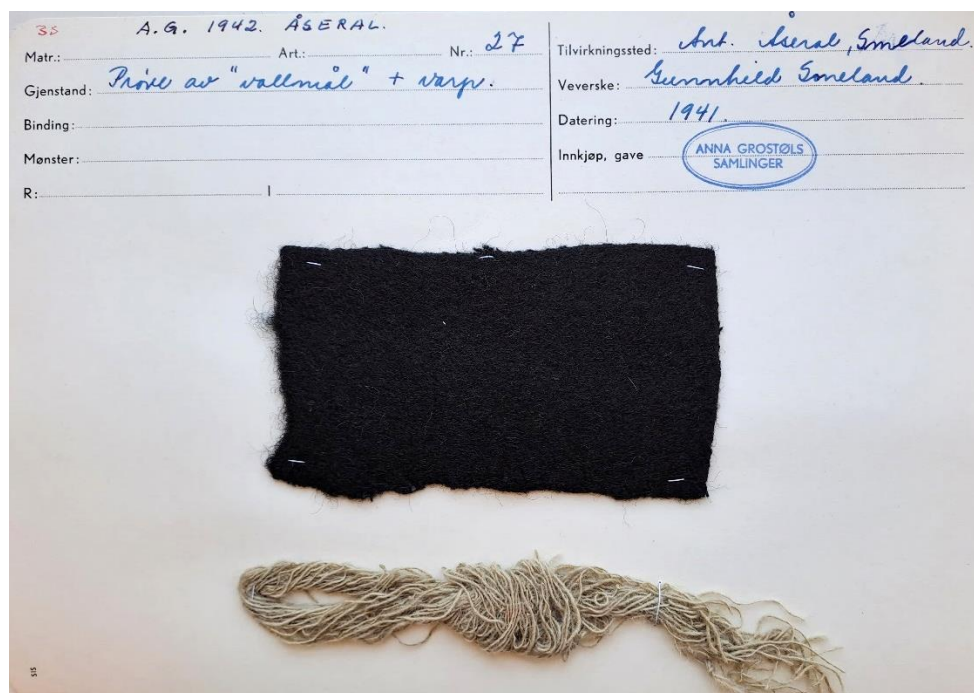 35 A. G. 1942. ÅSERAL.
Matr.: Art.: Nr.: 27
Gjenstand: Prøve av "vallmål" + varp.
Binding:
Mønster:
R: I
Tilvirkningssted: Ant. Åseral, Smeland.
Veverske: Gunnhild Smeland.
Datering: 1941.
Innkjøp, gave
ANNA GROSTØLS
SAMLINGER
515